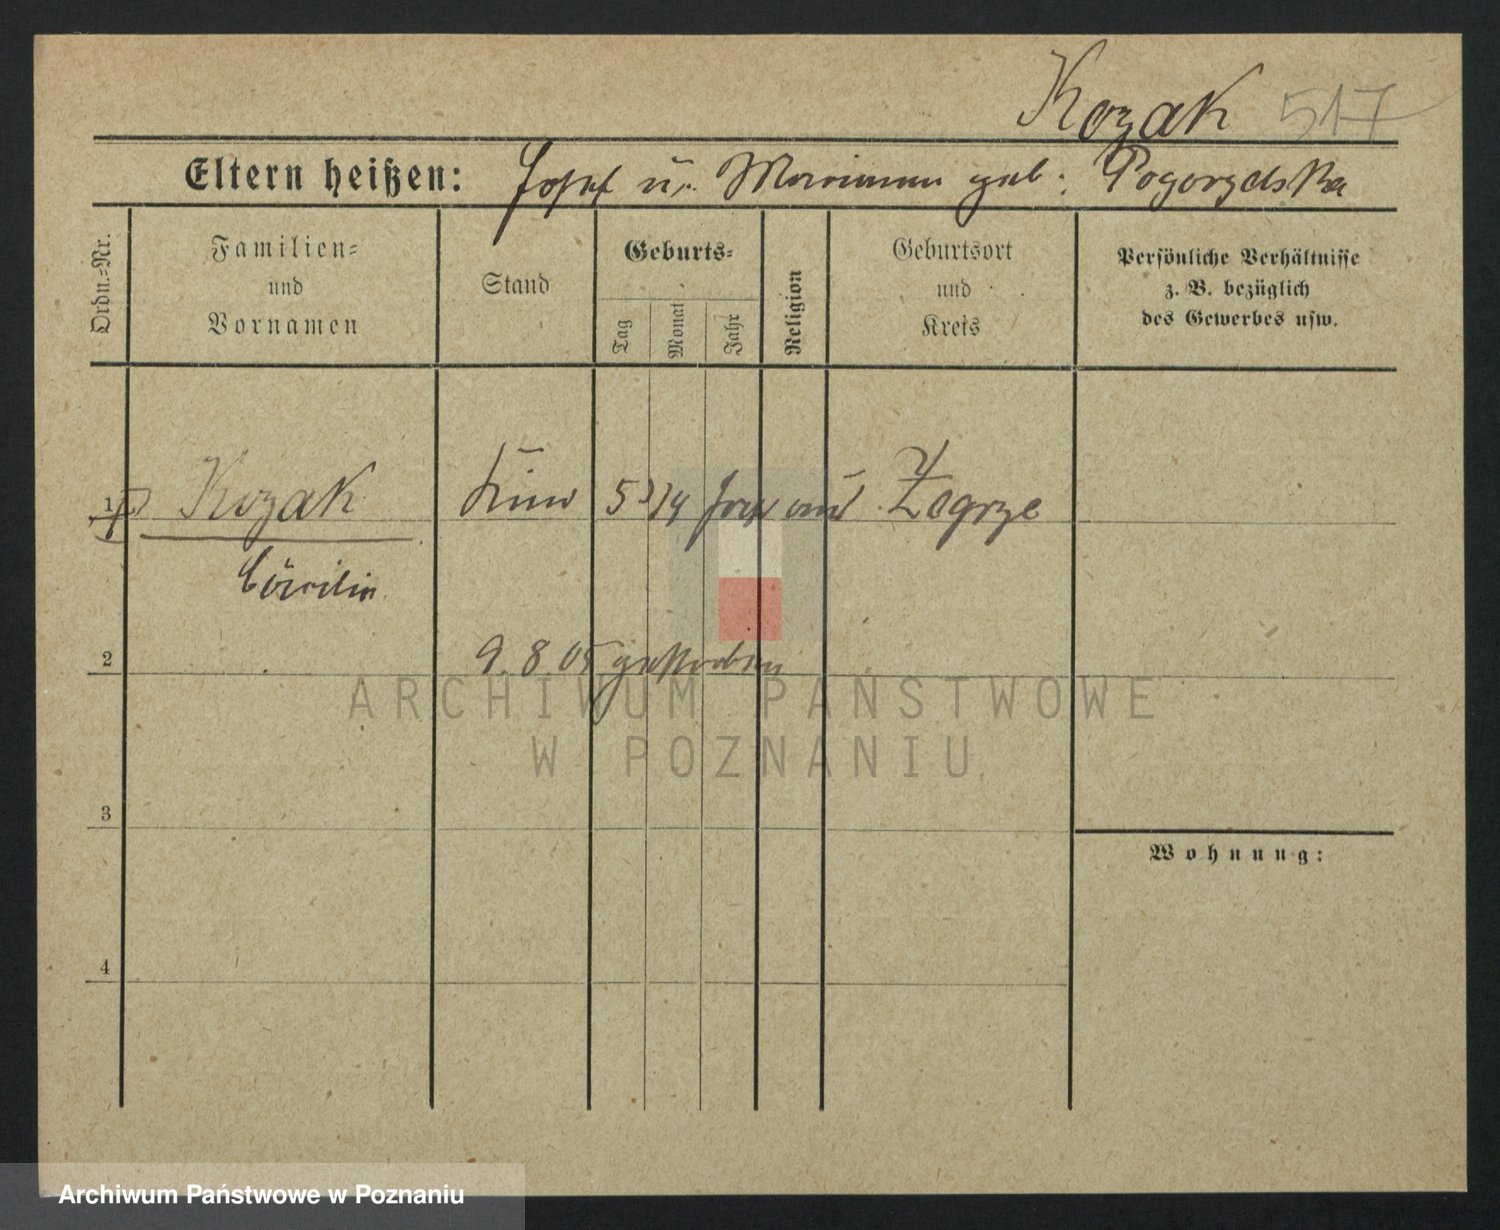 Kozak 517
Eltern heißen: Josef u. Marianna geb: Pogorzelska
Ordn.-Nr.
Familien-
und
Vornamen
Stand
Geburts-
Tag
Monat
Jahr
Religion
Geburtsort
und
Kreis
Persönliche Verhältnisse
z. B. bezüglich
des Gewerbes usw.
1 Kozak Kind Zegrze
Cäcilia
9. 8. 05 gestorben
2
3
4
Wohnung:
ARCHIWUM PAŃSTWOWE
W POZNANIU
Archiwum Państwowe w Poznaniu